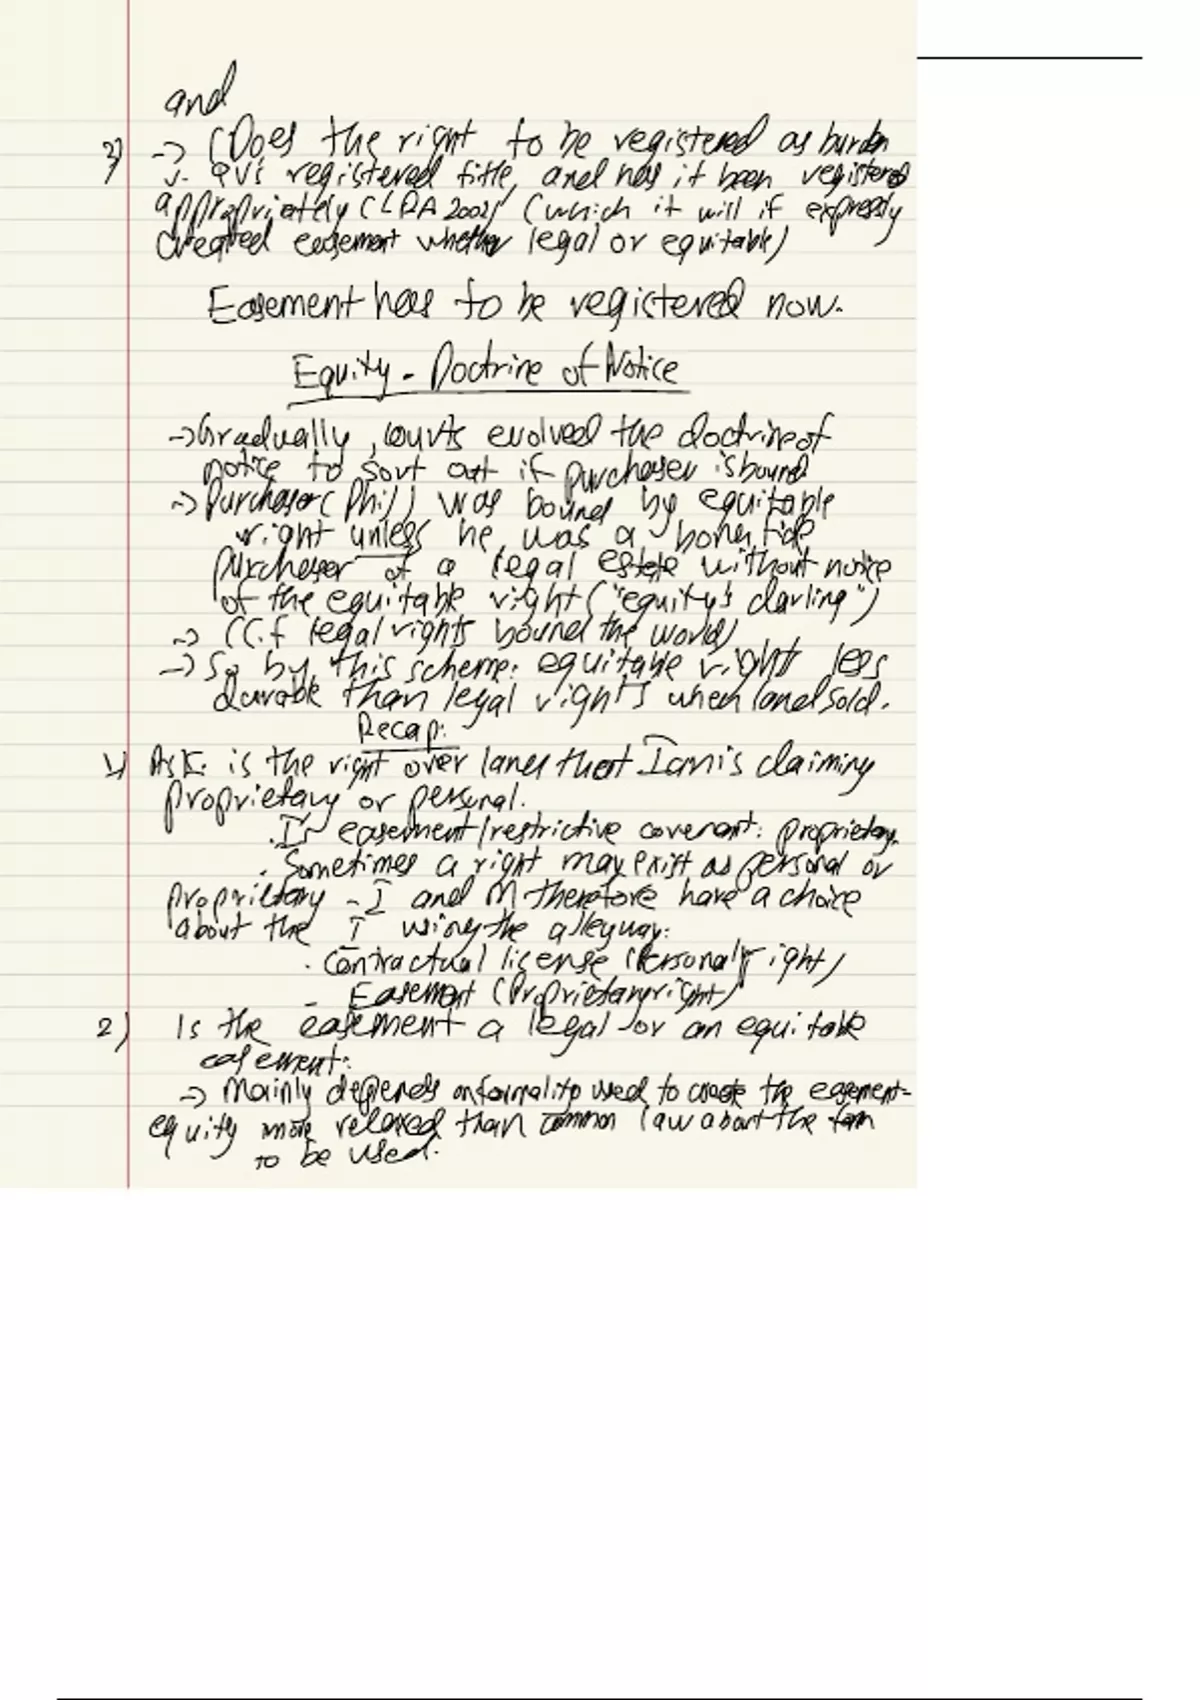 and
3) → (Does the right to be registered as burden
v. QV's registered title, and has it been registered
appropriately (LRA 2002) (which it will if expressly
created easement whether legal or equitable)
Easement has to be registered now.
Equity - Doctrine of Notice
→ Gradually, courts evolved the doctrine of
notice to sort out if purchaser is bound
→ Purchaser (Phil) was bound by equitable
right unless he was a bona fide
purchaser of a legal estate without notice
of the equitable right ("equity's darling")
→ (C.f legal rights bound the world)
→ So by this scheme: equitable right less
durable than legal rights when land sold.
Recap:
1) Ask: is the right over land that Ian is claiming
proprietary or personal.
. Is easement/restrictive covenant: proprietary.
. Sometimes a right may exist as personal or
proprietary - I and M therefore have a choice
about the I using the alleyway:
. Contractual license (Personal right)
- Easement (Proprietary right)
2) Is the easement a legal or an equitable
easement:
→ Mainly depends on formality used to create the easement-
equity more relaxed than common law about the form
to be used.